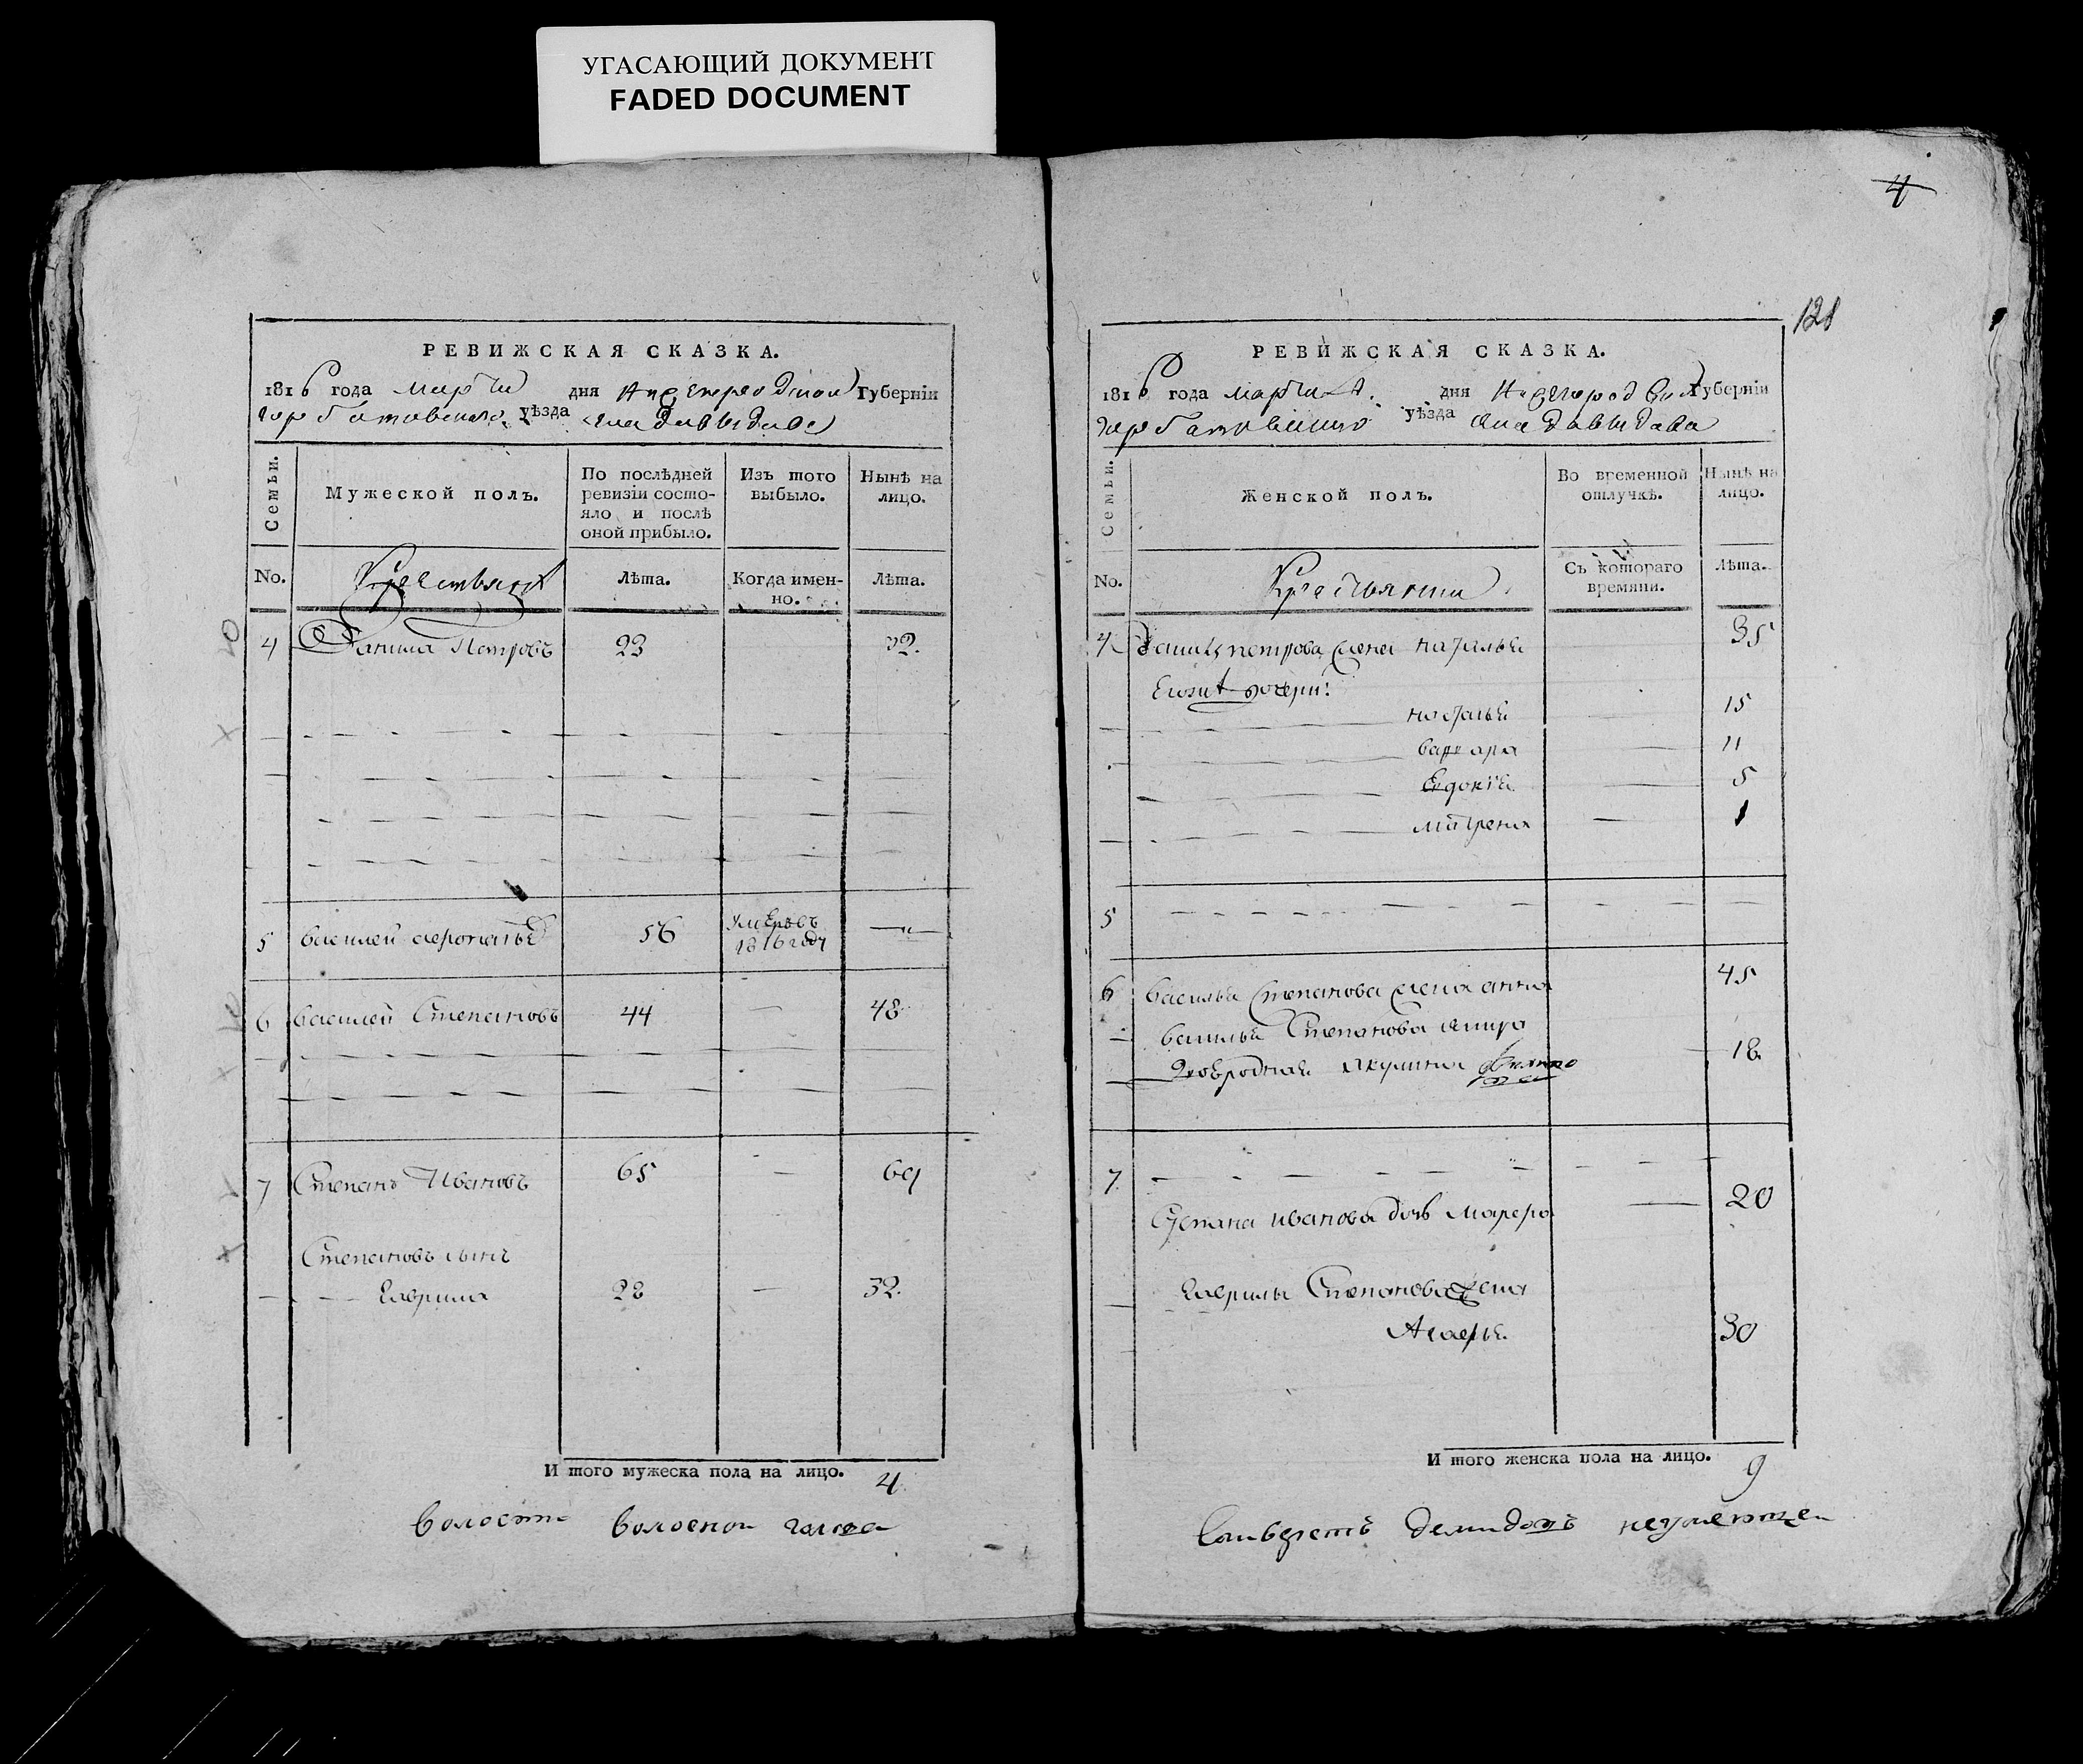 УГАСАЮЩИЙ ДОКУМЕНТ
FADED DOCUMENT
РЕВИЖСКАЯ СКАЗКА.
1816 года марта дня Нижегородской Губерніи
горбатовского уѣзда села давыдова
Семьи.
Мужеской полъ.
По послѣдней ревизіи состо-
яло и послѣ
оной прибыло.
Изъ того
выбыло.
Нынѣ на
лицо.
No.
Крестьяня
Лѣта.
Когда имен-
но.
Лѣта.
4 Данила Петровъ 23 32.
5 василей 56 Умеръ въ 1816 году
6 василей Степановъ 44 — 48
7 Степанъ Ивановъ 65 — 69
Степановъ сынъ
Гаврила 28 — 32.
И того мужеска пола на лицо. 4
волостной голова
4
121
РЕВИЖСКАЯ СКАЗКА.
1816 года марта дня Нижегородской Губерніи
горбатовского уѣзда села давыдова
Семьи.
Женской полъ.
Во временной
отлучкѣ.
Нынѣ на
лицо.
No.
Крестьянки
Съ котораго
времяни.
Лѣта.
4 Данилы петрова жена наталья 35
дочери:
наталья 15
варвара 11
Евдокия 5
матрена 1
5
6 василья Степанова жена анна 45
василья Степанова
акулина 18
7
Степана иванова дочь 20
Гаврилы Степанова жена
30
И того женска пола на лицо. 9
демидовъ